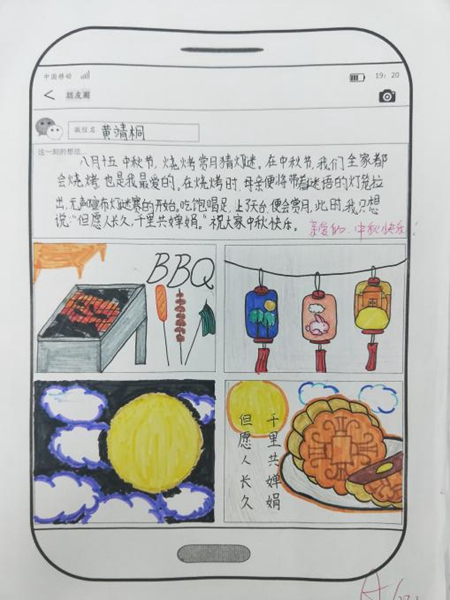 中国移动
19:20
朋友圈
微信名 黄靖桐
这一刻的想法...
八月十五中秋节,烧烤赏月猜灯谜。在中秋节,我们全家都
会烧烤,也是我最爱的。在烧烤时,母亲便将带着谜语的灯笼拉
出,无声宣布灯谜赛的开始。吃饱喝足,上了天台,便会赏月,此时,我只想
说:“但愿人长久,千里共婵娟。”祝大家中秋快乐。
亲爱的,中秋快乐!
BBQ
千里共婵娟
但愿人长久